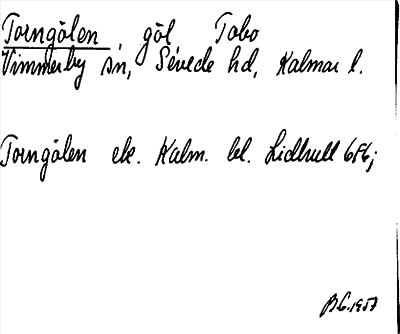 Torngölen, göl Tabo
Vimmerby sn, Sevede hd, Kalmar l.
Torngölen ek. Kalm. bl. Lidhult 6f6;
B.G. 1957